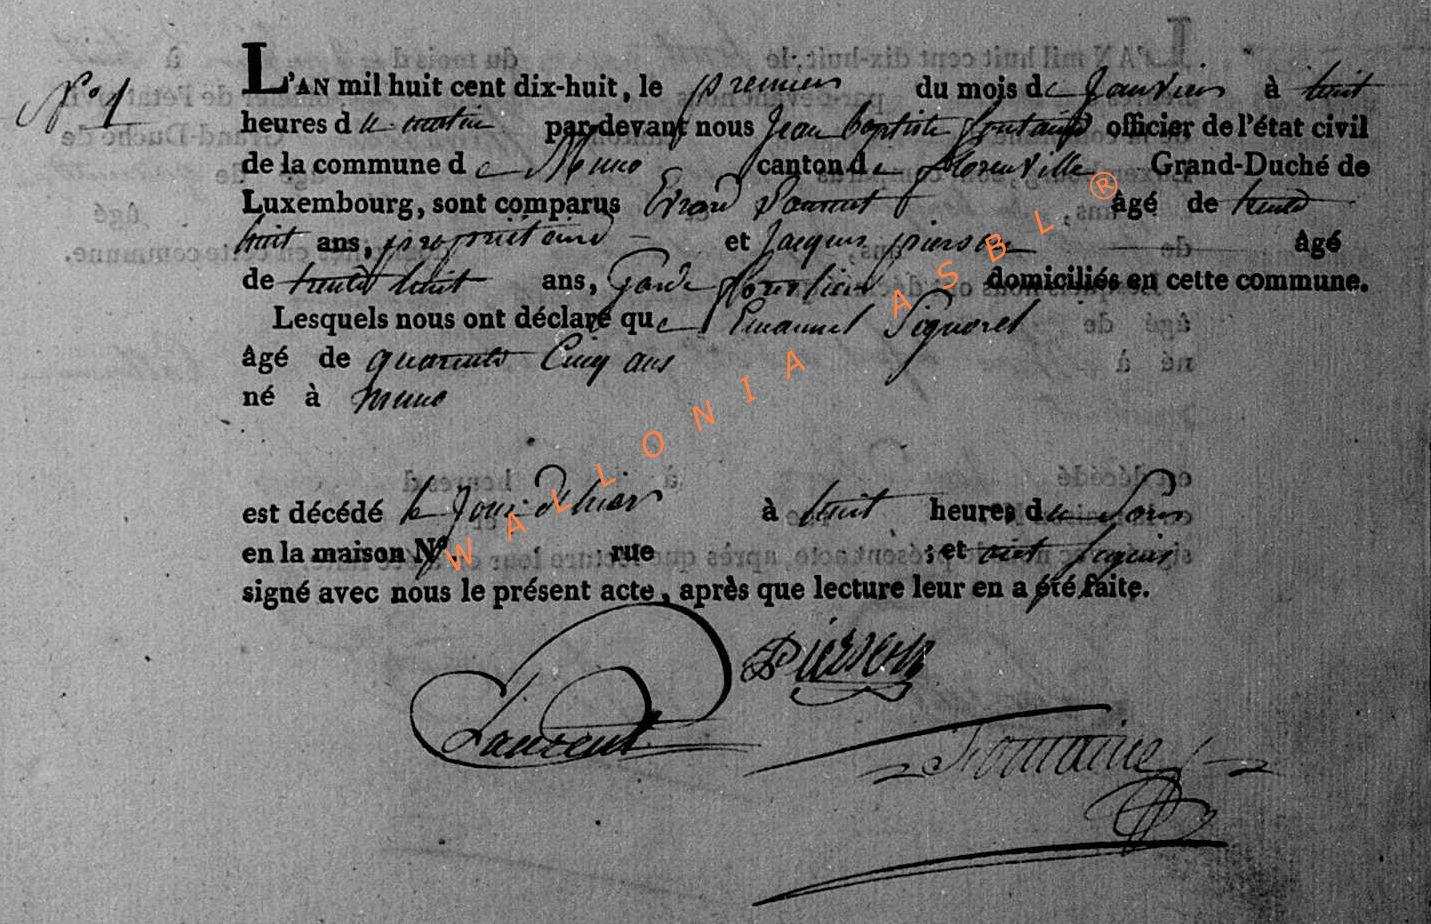 N° 1
L'AN mil huit cent dix-huit, le premier du mois de Janvier à huit
heures du matin par-devant nous Jean baptiste fontaine officier de l'état civil
de la commune de Muno canton de florenville Grand-Duché de
Luxembourg, sont comparus Evrard Laurent âgé de trente
huit ans, propriétaire et Jacques pierson âgé
de trente huit ans, Garde forestier domiciliés en cette commune.
Lesquels nous ont déclaré que Emanuel Signorel
âgé de quarante Cinq ans
né à muno
est décédé le Jour d'hier à huit heures du Soir
en la maison N°. rue ; et ont
signé avec nous le présent acte, après que lecture leur en a été faite.
Pierson
Laurent
Fontaine
WALLONIA ASBL ®